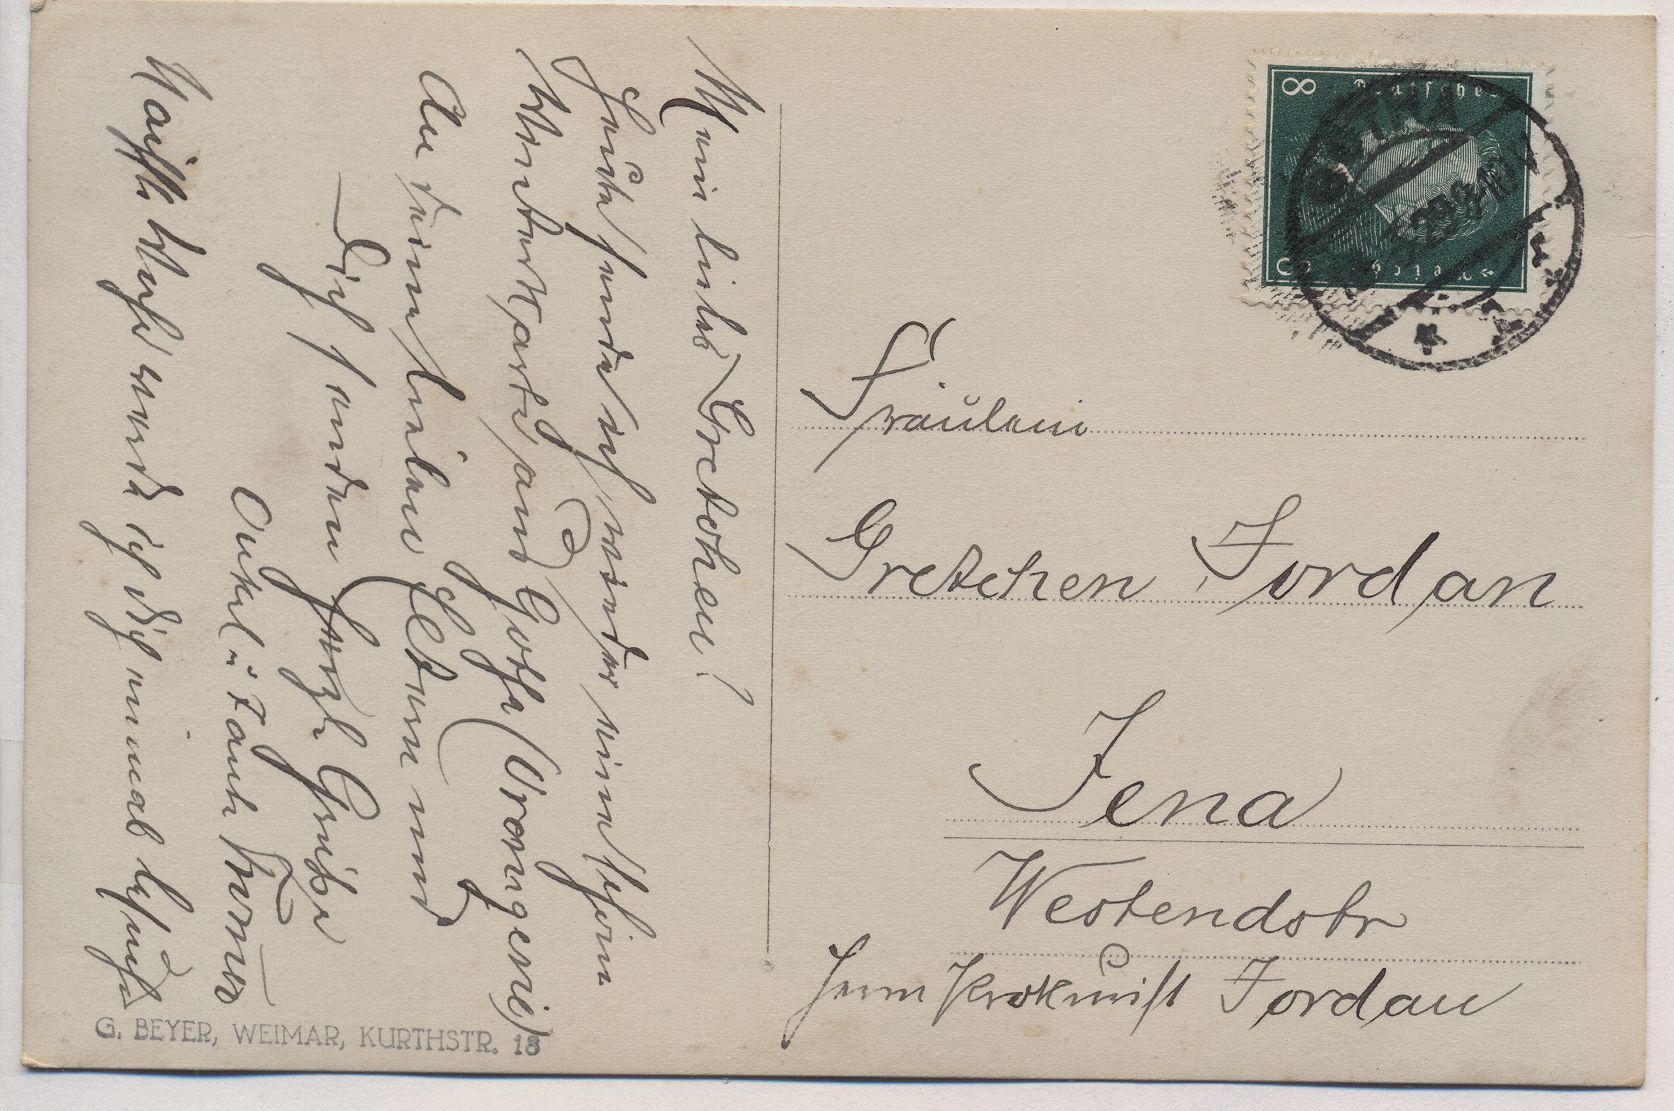 Mein liebes Gretchen!
Heute sende ich wieder eine schöne
Ansichtskarte aus Gotha (Orangerie)
An deine lieben Eltern und
Dich senden herzl. Grüße
Onkel u. Tante
Nächste Woche werde ich dich einmal besuchen
G. BEYER, WEIMAR, KURTHSTR. 18
8 Deutsches 8
Reich
GOTHA
29 8-10 V
Fräulein
Gretchen Jordan
Jena
Westendstr
Herrn Jordan